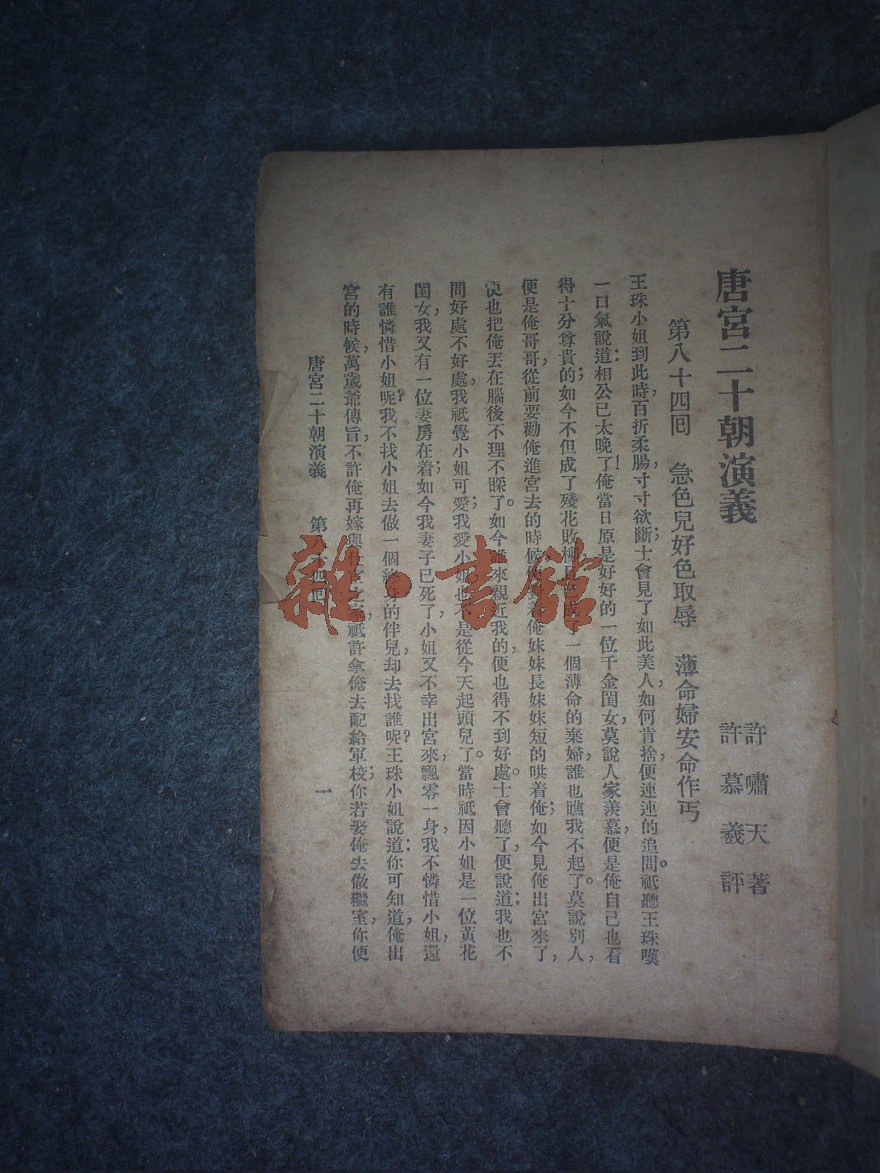 唐宮二十朝演義
許嘯天著
許慕羲評
第八十四囘 急色兒好色取辱 薄命婦安命作丐
王珠小姐到此時百折柔腸，寸寸欲斷；士會見了如此美人，如何肯捨，便連連的追問。祇聽王珠嘆
一口氣說道：相公已太晚了！俺當日原是好好的一位千金閨女，莫說人家羨慕，便是俺自己也看
得十分尊貴的；如今不但成了殘花敗柳，一個薄命的棄婦，誰也瞧我不起了。莫說別人，
便是俺哥哥，從前要勸俺進宮去的時候，俺妹妹長妹妹短的哄着俺；如今見俺出宮來了，
便也把俺丟在腦後，不理不睬了。如今誰來親近我的，便也得不到好處。士會聽了，便說道：我也不
問好處不好處，我祇覺小姐可愛；我愛小姐，也不是從今天起頭兒了。當時祇因小姐是一位黃花
閨女，我又有一位妻房在着；如今我妻子已死了，小姐又不幸出宮來，飄零一身，我不憐惜小姐，還
有誰憐惜小姐呢？我不找小姐去做一個終身的伴兒，却去找誰呢？王珠小姐說道：你可知道，俺出
宮的時候，萬歲爺傳旨，不許俺再嫁與仕宦之家，祇許拿俺去配給軍校；你若娶俺去做繼室，你便
唐宮二十朝演義 第八十四囘 一
雜·書館